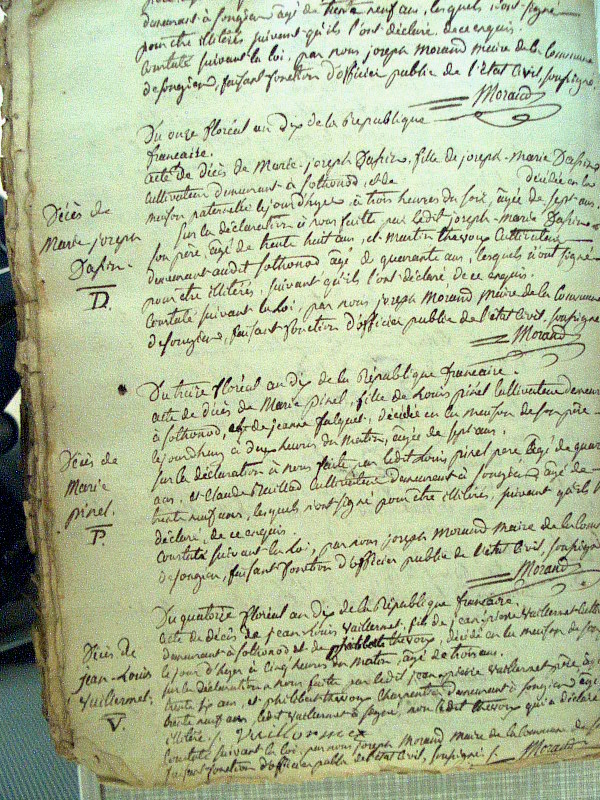 demeurant à songieu âgé de trente neuf ans, lesquels n'ont signé
pour être illitérés suivant qu'ils l'ont déclaré, de ce enquis.
Constaté suivant la loi, par nous joseph Morand maire de la Commune
de songieu, faisant fonction d'officier public de l'état Civil, soussigné.
Morand
Du onze floréal an dix de la Republique
francaise.
acte de décès de Marie-joseph Dapin, fille de joseph-Marie Dapin
Cultivateur demeurant à sothonod, et de décédée en la
maison paternelle le jour d'hyer à trois heures du soir, âgée de sept ans.
Sur la déclaration à nous faite par ledit joseph-marie Dapin
son père, âgé de trente huit ans, et Martin thevoux Cultivateur
demeurant audit sothonod âgé de quarante ans, lesquels n'ont signé
pour être illitérés, suivant qu'ils l'ont déclaré de ce enquis.
Constaté suivant la Loi, par nous joseph Morand Maire de la Commune
de songieu, faisant fonction d'officier public de l'état civil, soussigné
Morand
Décès de
Marie joseph
Dapin.
D.
Du treize floréal an dix de la République francaise.
acte de décès de Marie Pinel, fille de Louis pinel Cultivateur demeur
à sothonod, et de jeanne falquet, décédée en la maison de son père
le jourdhuy à dix heures du matin, âgée de sept ans.
Sur la déclaration à nous faite par ledit Louis pinel père âgé de quar
ans, et Claude Cultivateur demeurant à songieu, âgé de
trente neuf ans, lesquels n'ont signé pour être illitérés, suivant qu'ils l
déclaré, de ce enquis.
Constaté suivant la Loi, par nous joseph Morand maire de la Com
de songieu, faisant fonction d'officier public de l'état civil, soussigné
Morand
Décès de
Marie
pinel.
P.
Du quatorze floréal an Dix de la République francaise.
acte de décès de jean-Louis Vuillermet, fils de jean-pierre Vuillermet Culti
demeurant à sothonod et de philiberte thevoux, décédé en la maison de son
le jour d'hyer à Cinq heures du matin, âgé de trois ans.
Sur la déclaration à nous faite par ledit jean pierre Vuillermet père, âgé
trente ans, et philibert thevoux Charpentier demeurant à songieu âgé
trente neuf ans, ledit Vuillermet a signé, non ledit thevoux qui a déclaré
illitéré. Vuillermet
Constaté suivant la loi, par nous joseph Morand maire de la Commune de son
faisant fonction d'officier public de l'état Civil, soussigné.
Morand
Décès de
jean-Louis
Vuillermet.
V.